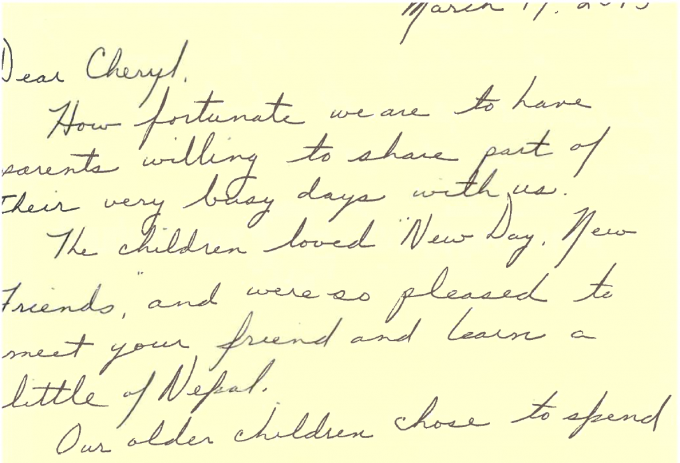 March 19, 2015
Dear Cheryl,
How fortunate we are to have
parents willing to share part of
their very busy days with us.
The children loved "New Day, New
Friends," and were so pleased to
meet your friend and learn a
little of Nepal.
Our older children chose to spend